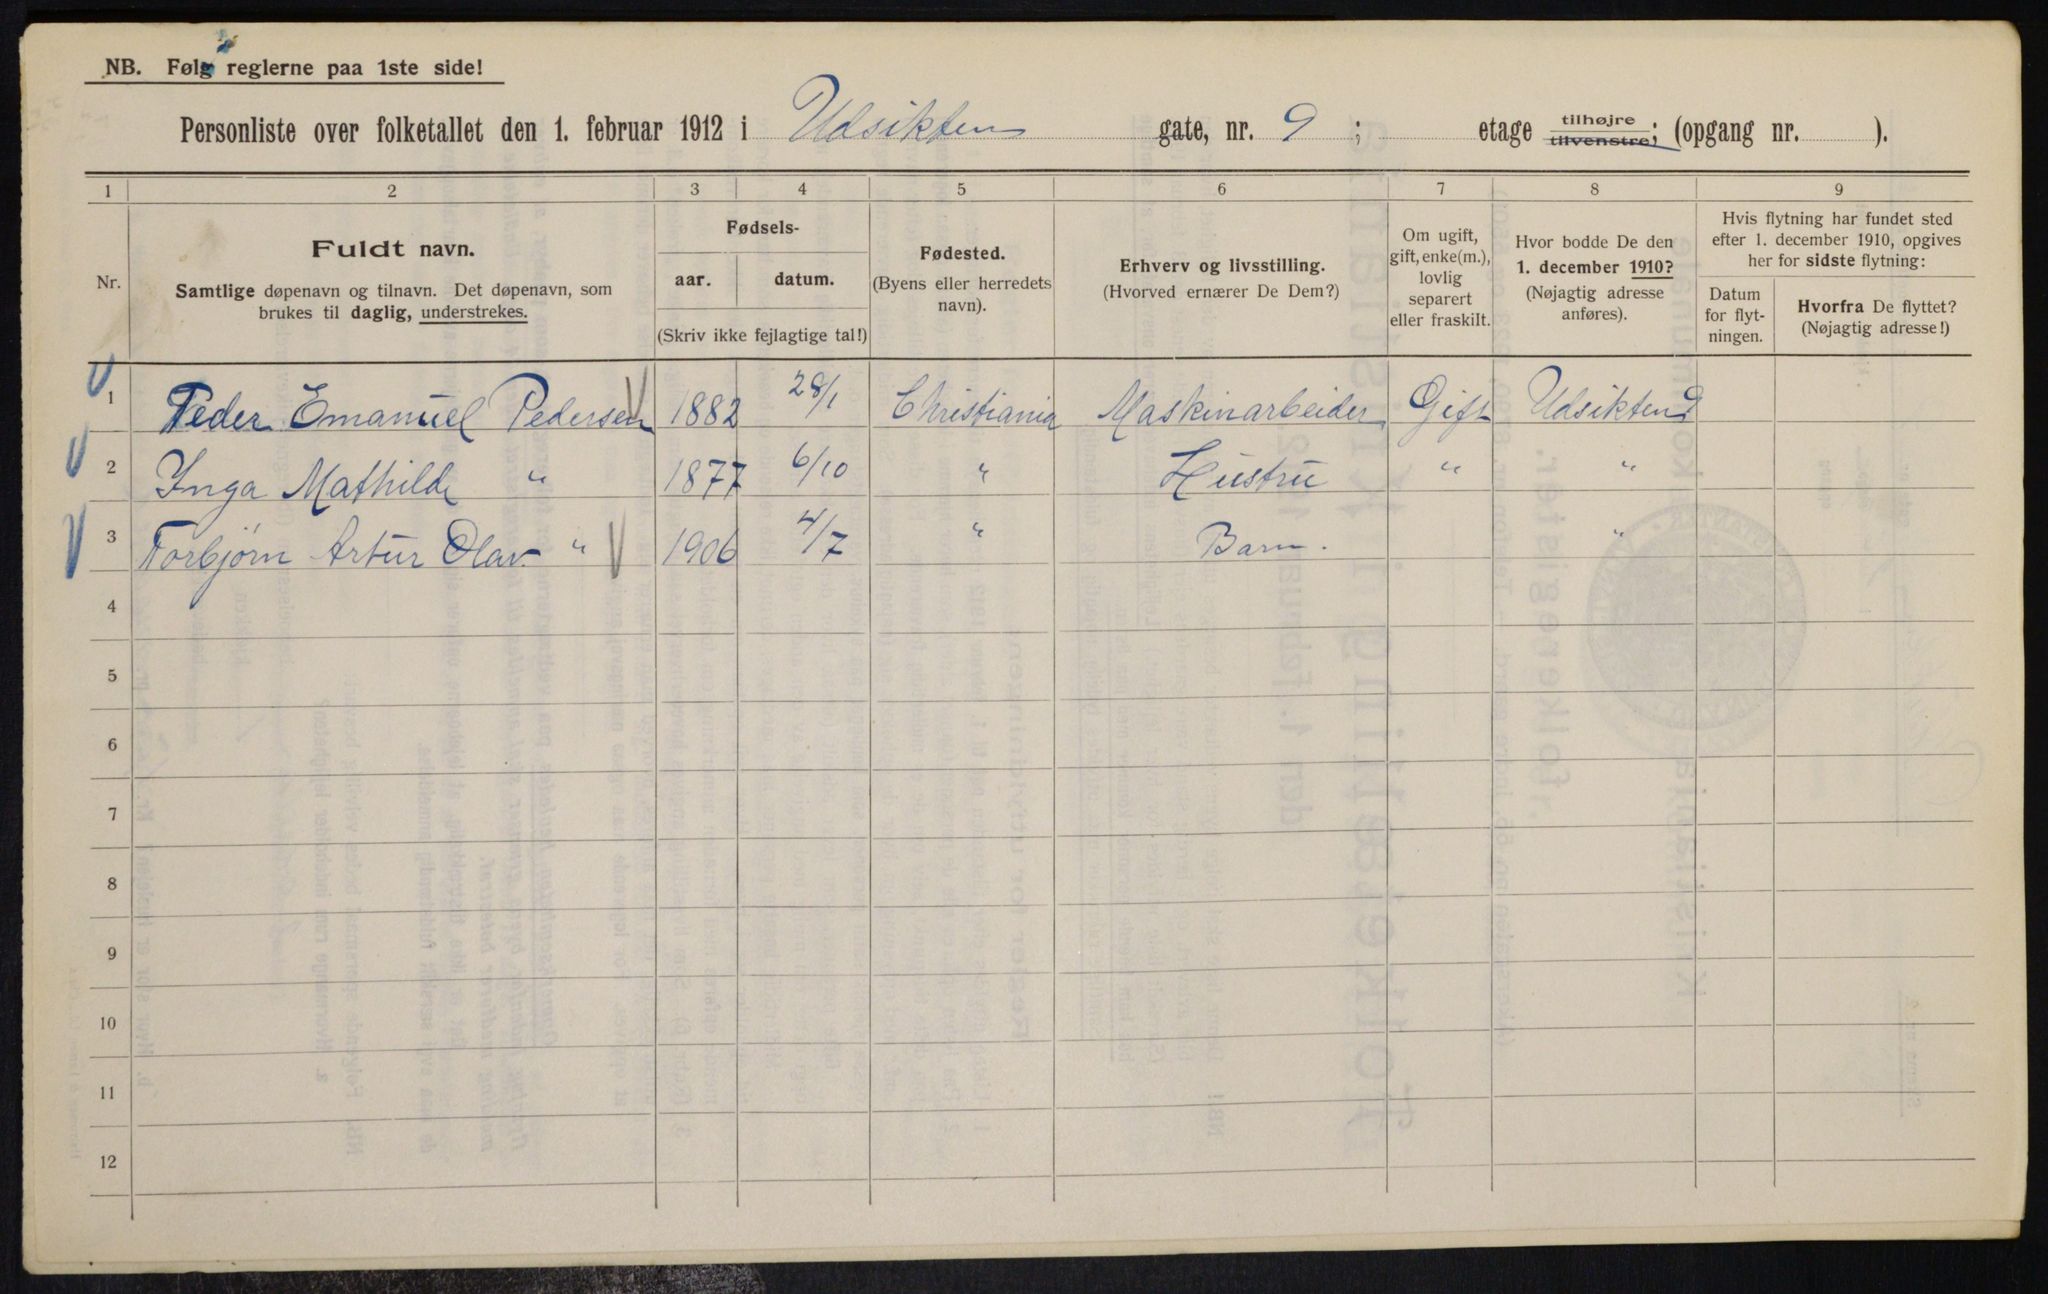 NB. Følg reglerne paa 1ste side!
Personliste over folketallet den 1. februar 1912 i Udsikten gate, nr. 9 ; etage tilhøjre tilvenstre; (opgang nr. ).
1 2 3 4 5 6 7 8 9
Nr.
Fuldt navn.
Samtlige døpenavn og tilnavn. Det døpenavn, som
brukes til daglig, understrekes.
Fødsels-
aar. datum.
(Skriv ikke fejlagtige tal!)
Fødested.
(Byens eller herredets
navn).
Erhverv og livsstilling.
(Hvorved ernærer De Dem?)
Om ugift,
gift, enke(m.),
lovlig
separert
eller fraskilt.
Hvor bodde De den
1. december 1910?
(Nøjagtig adresse
anføres).
Hvis flytning har fundet sted
efter 1. december 1910, opgives
her for sidste flytning:
Datum
for flyt-
ningen.
Hvorfra De flyttet?
(Nøjagtig adresse!)
1 Peder Emanuel Pedersen 1882 28/1 Christiania Maskinarbeider Gift Udsikten 9
2 Inga Mathilde " 1877 6/10 " Hustru " "
3 Torbjørn Artur Olav " 1906 4/7 " Barn. "
4
5
6
7
8
9
10
11
12